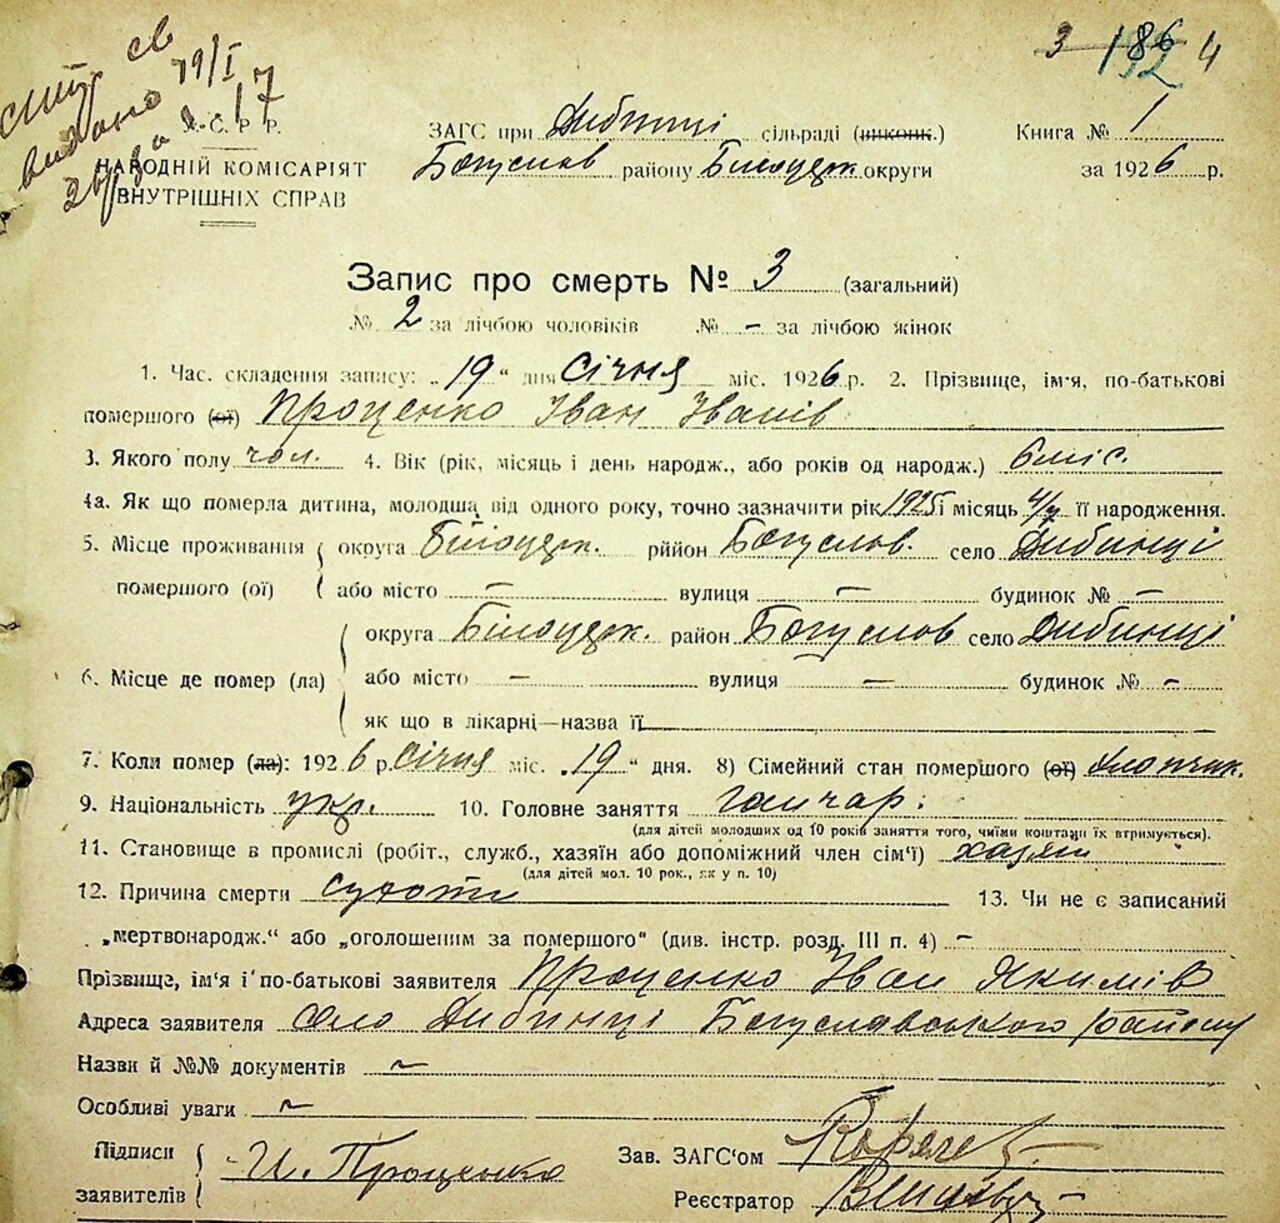 3 186 4
У.С.Р.Р.
НАРОДНІЙ КОМІСАРІЯТ
ВНУТРІШНІХ СПРАВ
ЗАГС при Дибинці сільраді (виконк.) Книга № 1
Богуслов району Білоцерк округи за 1926 р.
Запис про смерть № 3 (загальний)
№ 2 за лічбою чоловіків № – за лічбою жінок
1. Час. складення запису: „19" дня Січня міс. 1926 р. 2. Прізвище, ім'я, по-батькові
помершого (ої) Проценко Іван Іванів
3. Якого полу чол. 4. Вік (рік, місяць і день народж., або років од народж.) 6 міс.
4а. Як що померла дитина, молодша від одного року, точно зазначити рік 1925 і місяць її народження.
5. Місце проживання округа Білоцерк. рййон Богуслов. село Дибинці
помершого (ої) або місто – вулиця – будинок № –
округа Білоцерк. район Богуслов село Дибинці
6. Місце де помер (ла) або місто – вулиця – будинок № –
як що в лікарні—назва її –
7. Коли помер (ла): 1926 р. Січня міс. „19" дня. 8) Сімейний стан помершого (ої) хлопчик.
9. Національність укр. 10. Головне заняття гончар.
(для дітей молодших од 10 років заняття того, чиїми коштами їх втримується).
11. Становище в промислі (робіт., служб., хазяїн або допоміжний член сім'ї) хазяїн
(для дітей мол. 10 рок., як у п. 10)
12. Причина смерти сухоти 13. Чи не є записаний
„мертвонародж." або „оголошеним за помершого" (див. інстр. розд. III п. 4) –
Прізвище, ім'я і по-батькові заявителя Проценко Іван Якимів
Адреса заявителя село Дибинці Богуславського району
Назви й №№ документів ~
Особливі уваги ~
Підписи
заявителів И. Проценко
Зав. ЗАГС'ом
Реєстратор